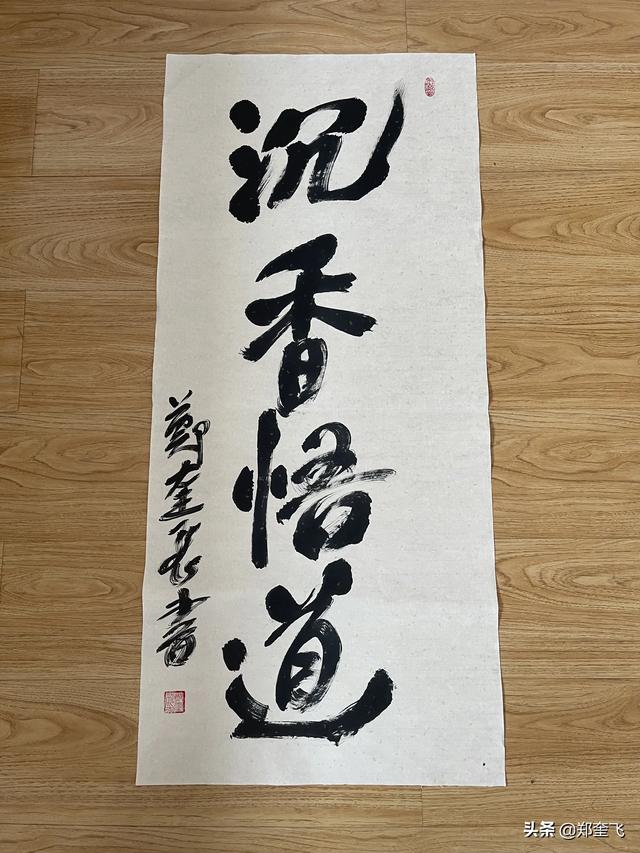 沉香悟道
鄭奎飛書
头条 @郑奎飞